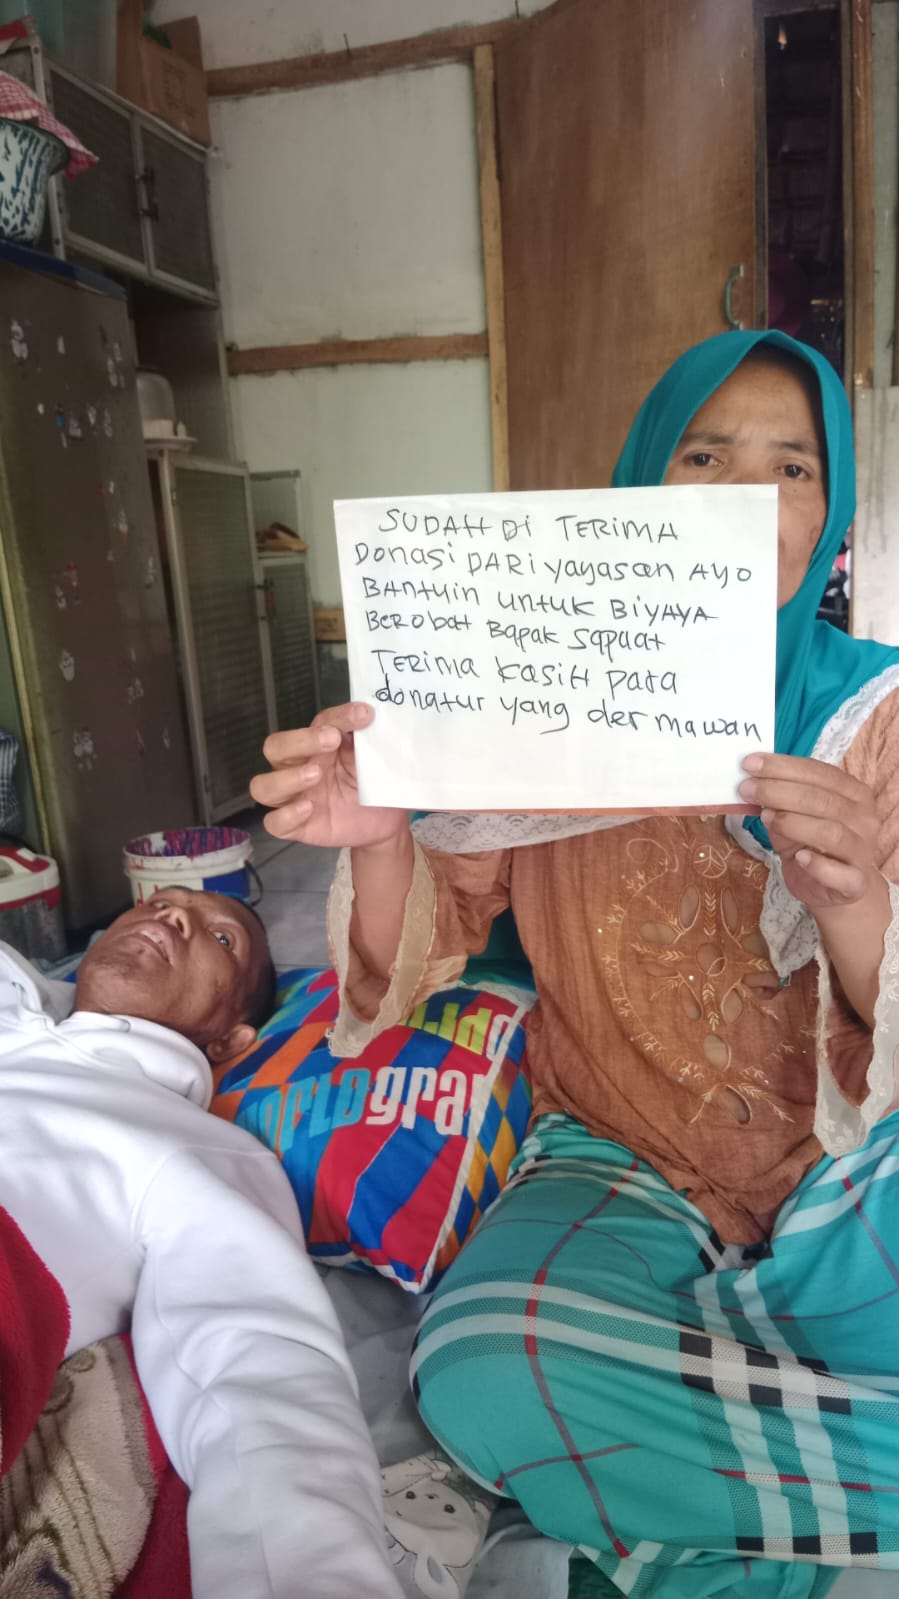 SUDAH Di TERIMA
Donasi DARi yayasan AYO
BANtuin untuk BiYAYA
Berobat Bapak Sapaat
TERiMA KasiH para
donatur yang dermawan
WORLDgra